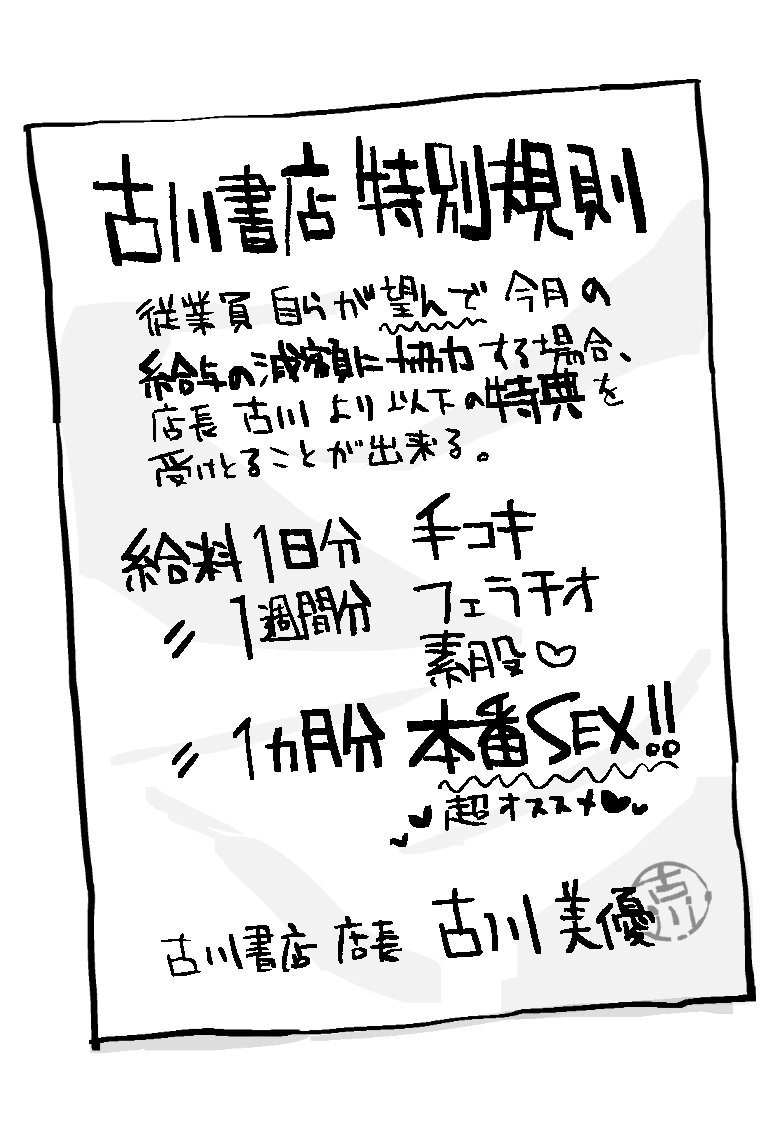 古川書店 特別規則
従業員 自らが望んで 今月の
給与の減額に協力する場合、
店長 古川 より 以下の特典を
受けとることが出来る。
給料1日分 手コキ
〃 1週間分 フェラチオ
素股♡
〃 1ヵ月分 本番SEX!!
♥超オススメ♥♥
古川書店 店長 古川 美優
古川